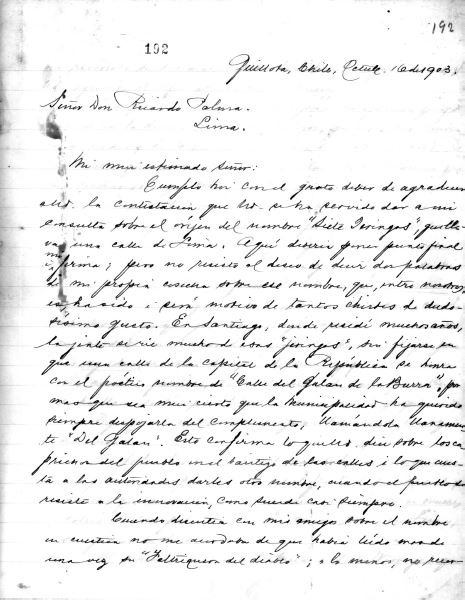 192
192
Quillota, Chile, Octub. 16 de 1903.
Señor Don Ricardo Palma.
Lima.
Mi mui estimado Señor:
Cumplo hoi con el grato deber de agradecer
a Ud. la contestacion que Ud. se ha servido dar a mi
consulta sobre el oríjen del nombre "Siete Jeringas", que lle-
va una calle de Lima. Aquí deberia poner punto final
i firma; pero no resisto al deseo de decir dos palabras
de mi propia cosecha sobre ese nombre, que, entre nosotros,
ha sido i será motivo de tantos chistes de dudo-
sísimo gusto. En Santiago, donde residí muchos años,
la jente se rie mucho de esas "jeringas", sin fijarse en
que una calle de la capital de la República se honra
con el poético nombre de "Calle del Galan de la Burra", por
mas que sea mui cierto que la Municipalidad ha querido
siempre despojarla del complemento, llamándola llanamen-
te "Del Galan". Esto confirma lo que Ud. dice sobre los ca-
prichos del pueblo en el bautizo de las calles i lo que cues-
ta a las autoridades darles otro nombre, cuando el pueblo se
resiste a la innovacion, como sucede casi siempre.
Cuando discutia con mis amigos sobre el nombre
en cuestion no me acordaba de que habia leido mas de
una vez su "Faltriquera del diablo"; a lo menos, no recor-